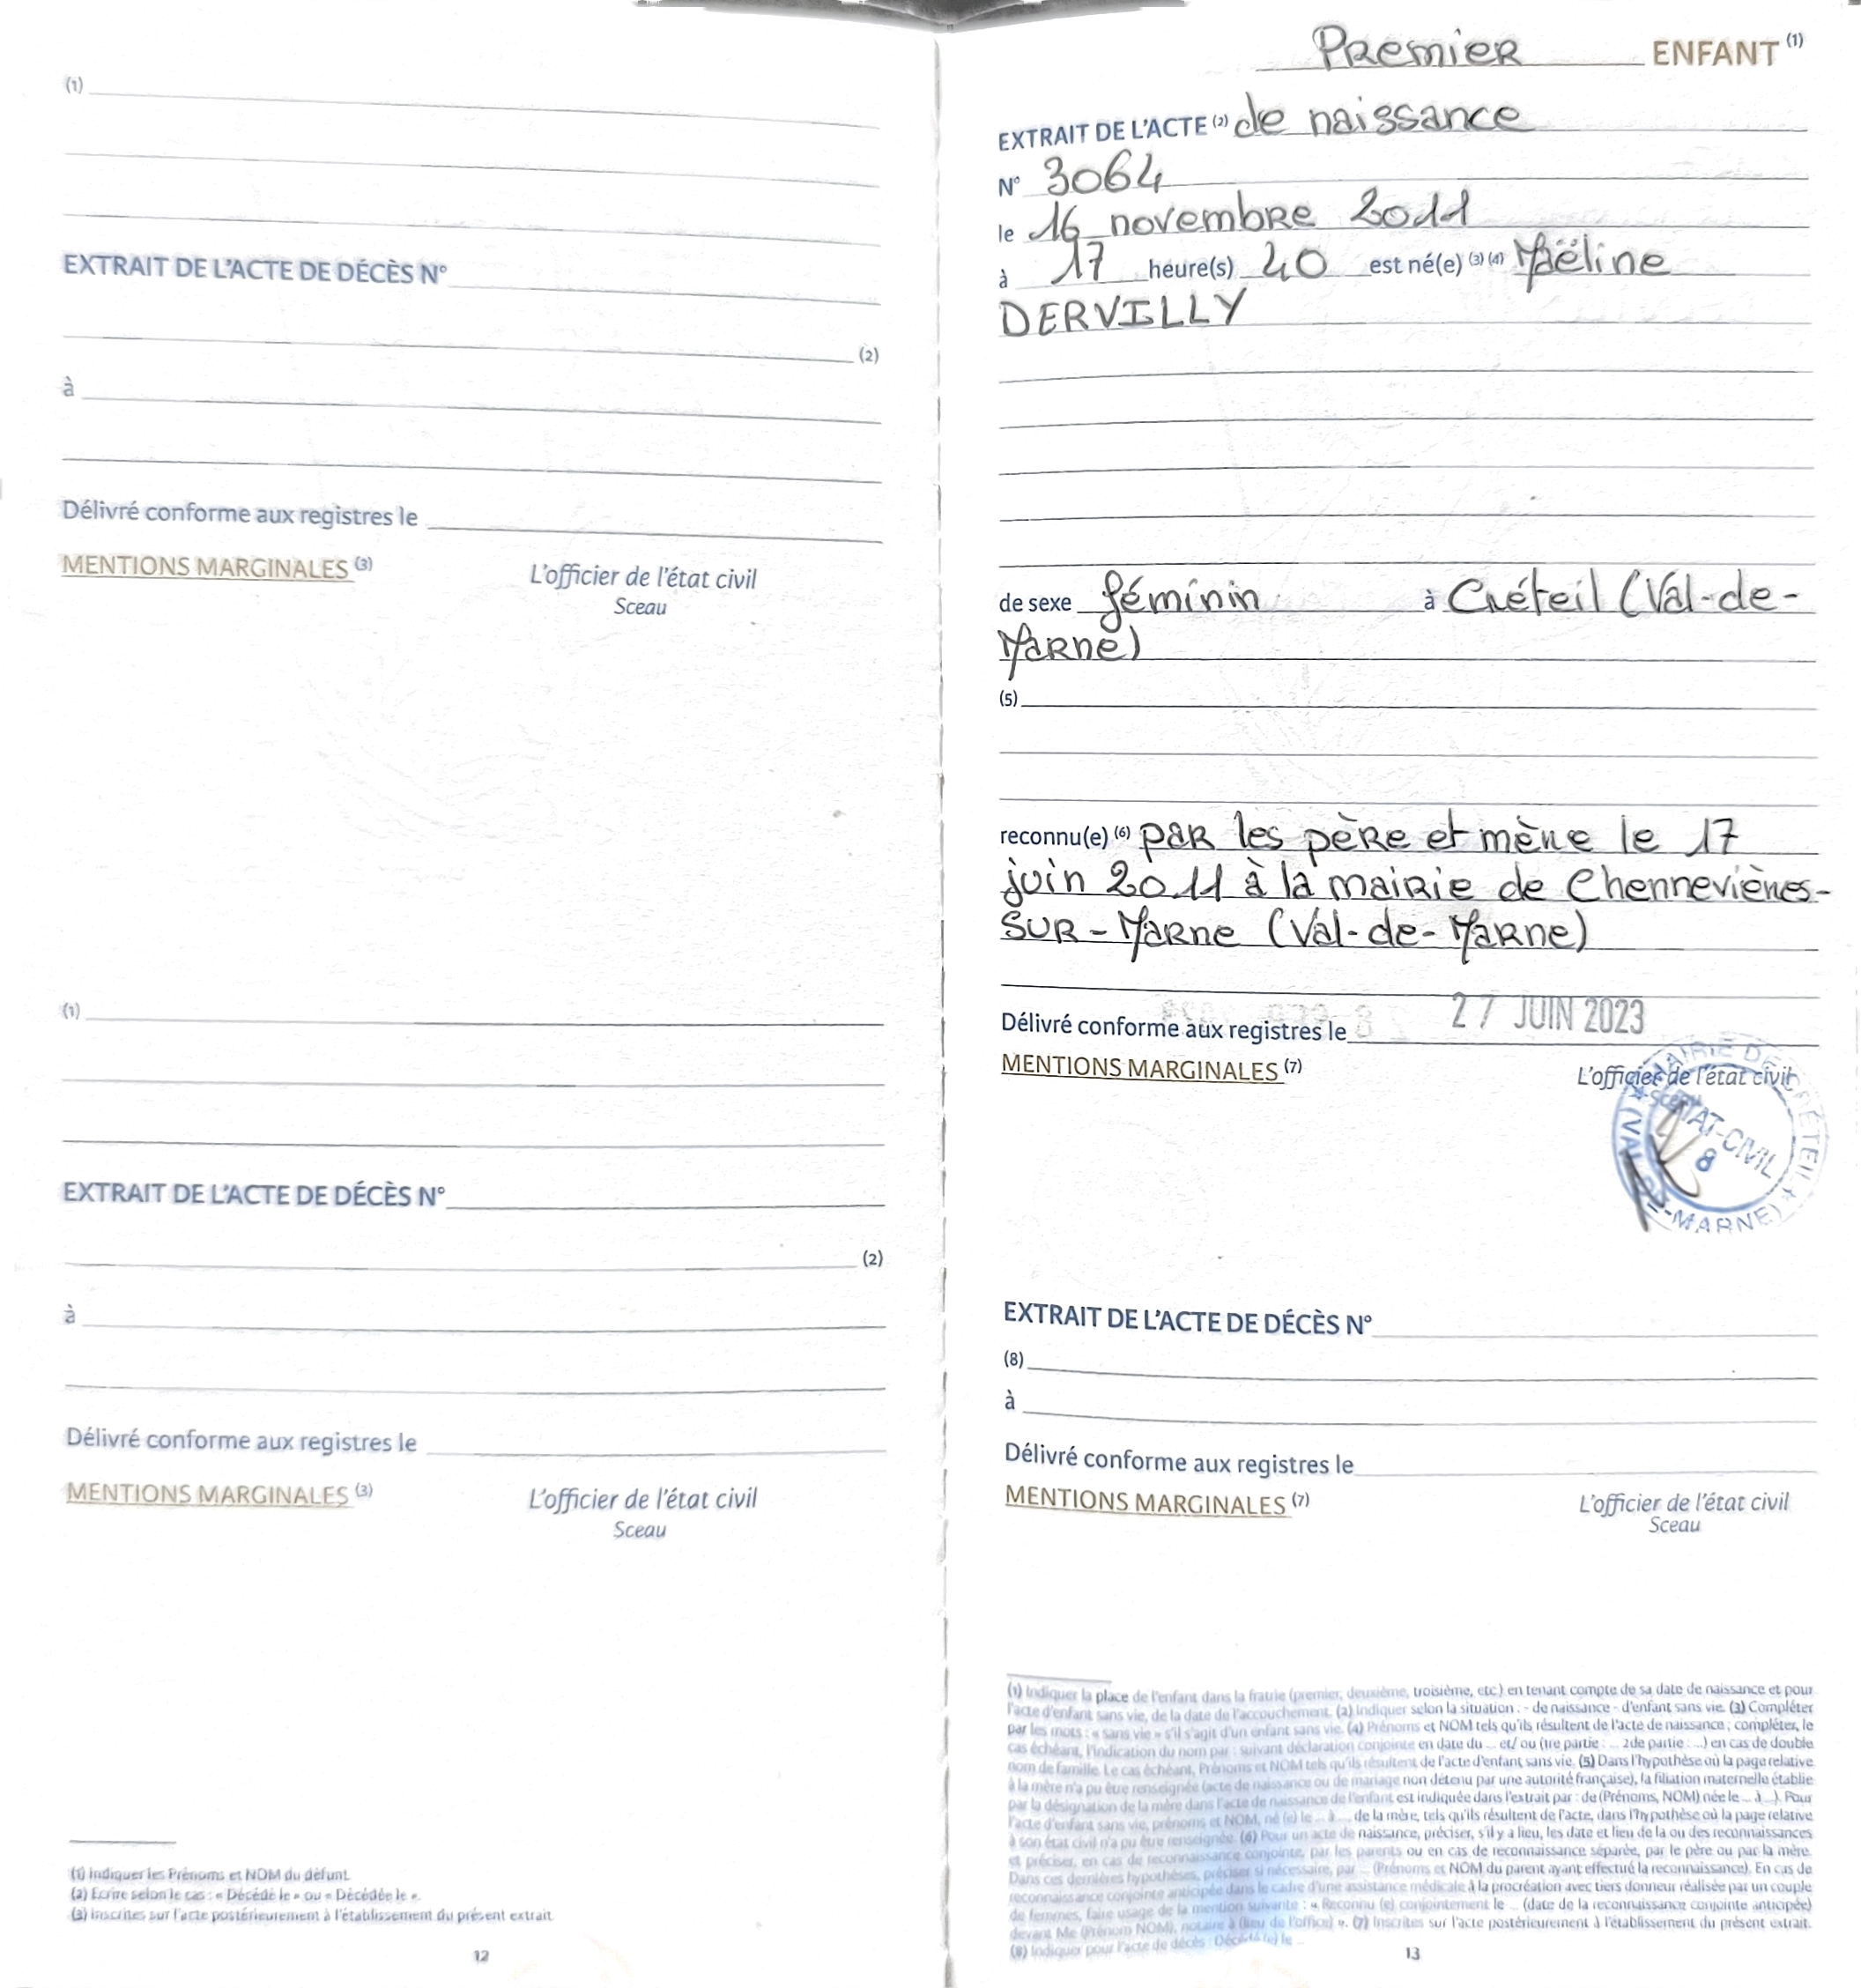 (1)
EXTRAIT DE L'ACTE DE DÉCÈS N°
(2)
à
Délivré conforme aux registres le
MENTIONS MARGINALES (3)
L'officier de l'état civil
Sceau
(1)
EXTRAIT DE L'ACTE DE DÉCÈS N°
(2)
à
Délivré conforme aux registres le
MENTIONS MARGINALES (3)
L'officier de l'état civil
Sceau
(1) Indiquer les Prénoms et NOM du défunt.
(2) Écrire selon le cas : « Décédé le » ou « Décédée le ».
(3) Inscrites sur l'acte postérieurement à l'établissement du présent extrait.
12
Premier ENFANT (1)
EXTRAIT DE L'ACTE (2) de naissance
N° 3064
le 16 novembre 2011
à 17 heure(s) 40 est né(e) (3) (4) Maëline
DERVILLY
de sexe féminin à Créteil (Val-de-
Marne)
(5)
reconnu(e) (6) par les père et mère le 17
juin 2011 à la mairie de Chennevières-
sur-Marne (Val-de-Marne)
Délivré conforme aux registres le 27 JUIN 2023
MENTIONS MARGINALES (7)
L'officier de l'état civil
Sceau
MAIRIE DE CRÉTEIL
ETAT-CIVIL
8
(VAL-DE-MARNE)
EXTRAIT DE L'ACTE DE DÉCÈS N°
(8)
à
Délivré conforme aux registres le
MENTIONS MARGINALES (7)
L'officier de l'état civil
Sceau
(1) Indiquer la place de l'enfant dans la fratrie (premier, deuxième, troisième, etc.) en tenant compte de sa date de naissance et pour
l'acte d'enfant sans vie, de la date de l'accouchement. (2) Indiquer selon la situation : - de naissance - d'enfant sans vie. (3) Compléter
par les mots : « sans vie » s'il s'agit d'un enfant sans vie. (4) Prénoms et NOM tels qu'ils résultent de l'acte de naissance ; compléter, le
cas échéant, l'indication du nom par : suivant déclaration conjointe en date du ... et/ ou (1re partie : ... 2de partie : ...) en cas de double
nom de famille. Le cas échéant, Prénoms et NOM tels qu'ils résultent de l'acte d'enfant sans vie. (5) Dans l'hypothèse où la page relative
à la mère n'a pu être renseignée (acte de naissance ou de mariage non détenu par une autorité française), la filiation maternelle établie
par la désignation de la mère dans l'acte de naissance de l'enfant est indiquée dans l'extrait par : de (Prénoms, NOM) née le ... à ...). Pour
l'acte d'enfant sans vie, prénoms et NOM, né (e) le ... à ..., de la mère, tels qu'ils résultent de l'acte, dans l'hypothèse où la page relative
à son état civil n'a pu être renseignée. (6) Pour un acte de naissance, préciser, s'il y a lieu, les date et lieu de la ou des reconnaissances
et préciser, en cas de reconnaissance conjointe, par les parents ou en cas de reconnaissance séparée, par le père ou par la mère.
Dans ces dernières hypothèses, préciser si nécessaire, par ... (Prénoms et NOM du parent ayant effectué la reconnaissance). En cas de
reconnaissance conjointe anticipée dans le cadre d'une assistance médicale à la procréation avec tiers donneur réalisée par un couple
de femmes, faire usage de la mention suivante : « Reconnu (e) conjointement le ... (date de la reconnaissance conjointe anticipée)
devant Me (Prénom NOM), notaire à (lieu de l'office) ». (7) Inscrites sur l'acte postérieurement à l'établissement du présent extrait.
(8) Indiquer pour l'acte de décès : Décédé (e) le ...
13